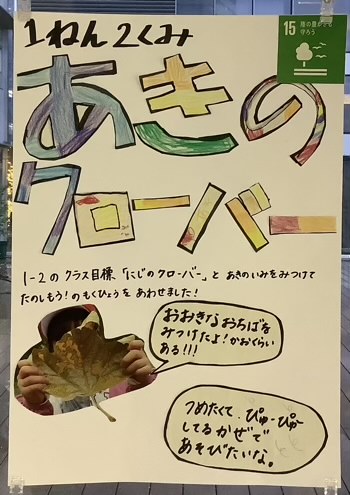 1ねん2くみ
15 陸の豊かさも
守ろう
あきの
クローバー
1-2の クラス目標、「にじのクローバー」と あきのいみをみつけて
たのしもう!のもくひょうを あわせました!
おおきなおちばを
みつけたよ!かおくらい
ある!!!
つめたくて、ぴゅーぴゅー
してるかぜで
あそびたいな。